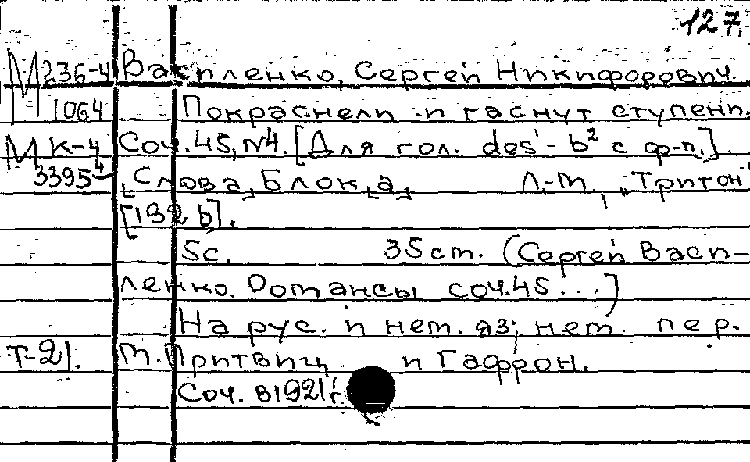 127.
М 236-4 Василенко, Сергей Никифорович.
1064 Покраснели и гаснут ступени.
М К-4 Соч. 45, №4. [Для гол. des'-b² с ф-п.]
33954 [Слова] Блок[а]. Л.-М., "Тритон"
[1926].
5с. 35 ст. (Сергей Васи-
ленко. Романсы соч. 45...)
На рус. и нем. яз; нем. пер.
Т-21. М. Притвиц и Гафрон.
Соч. в 1921 г.